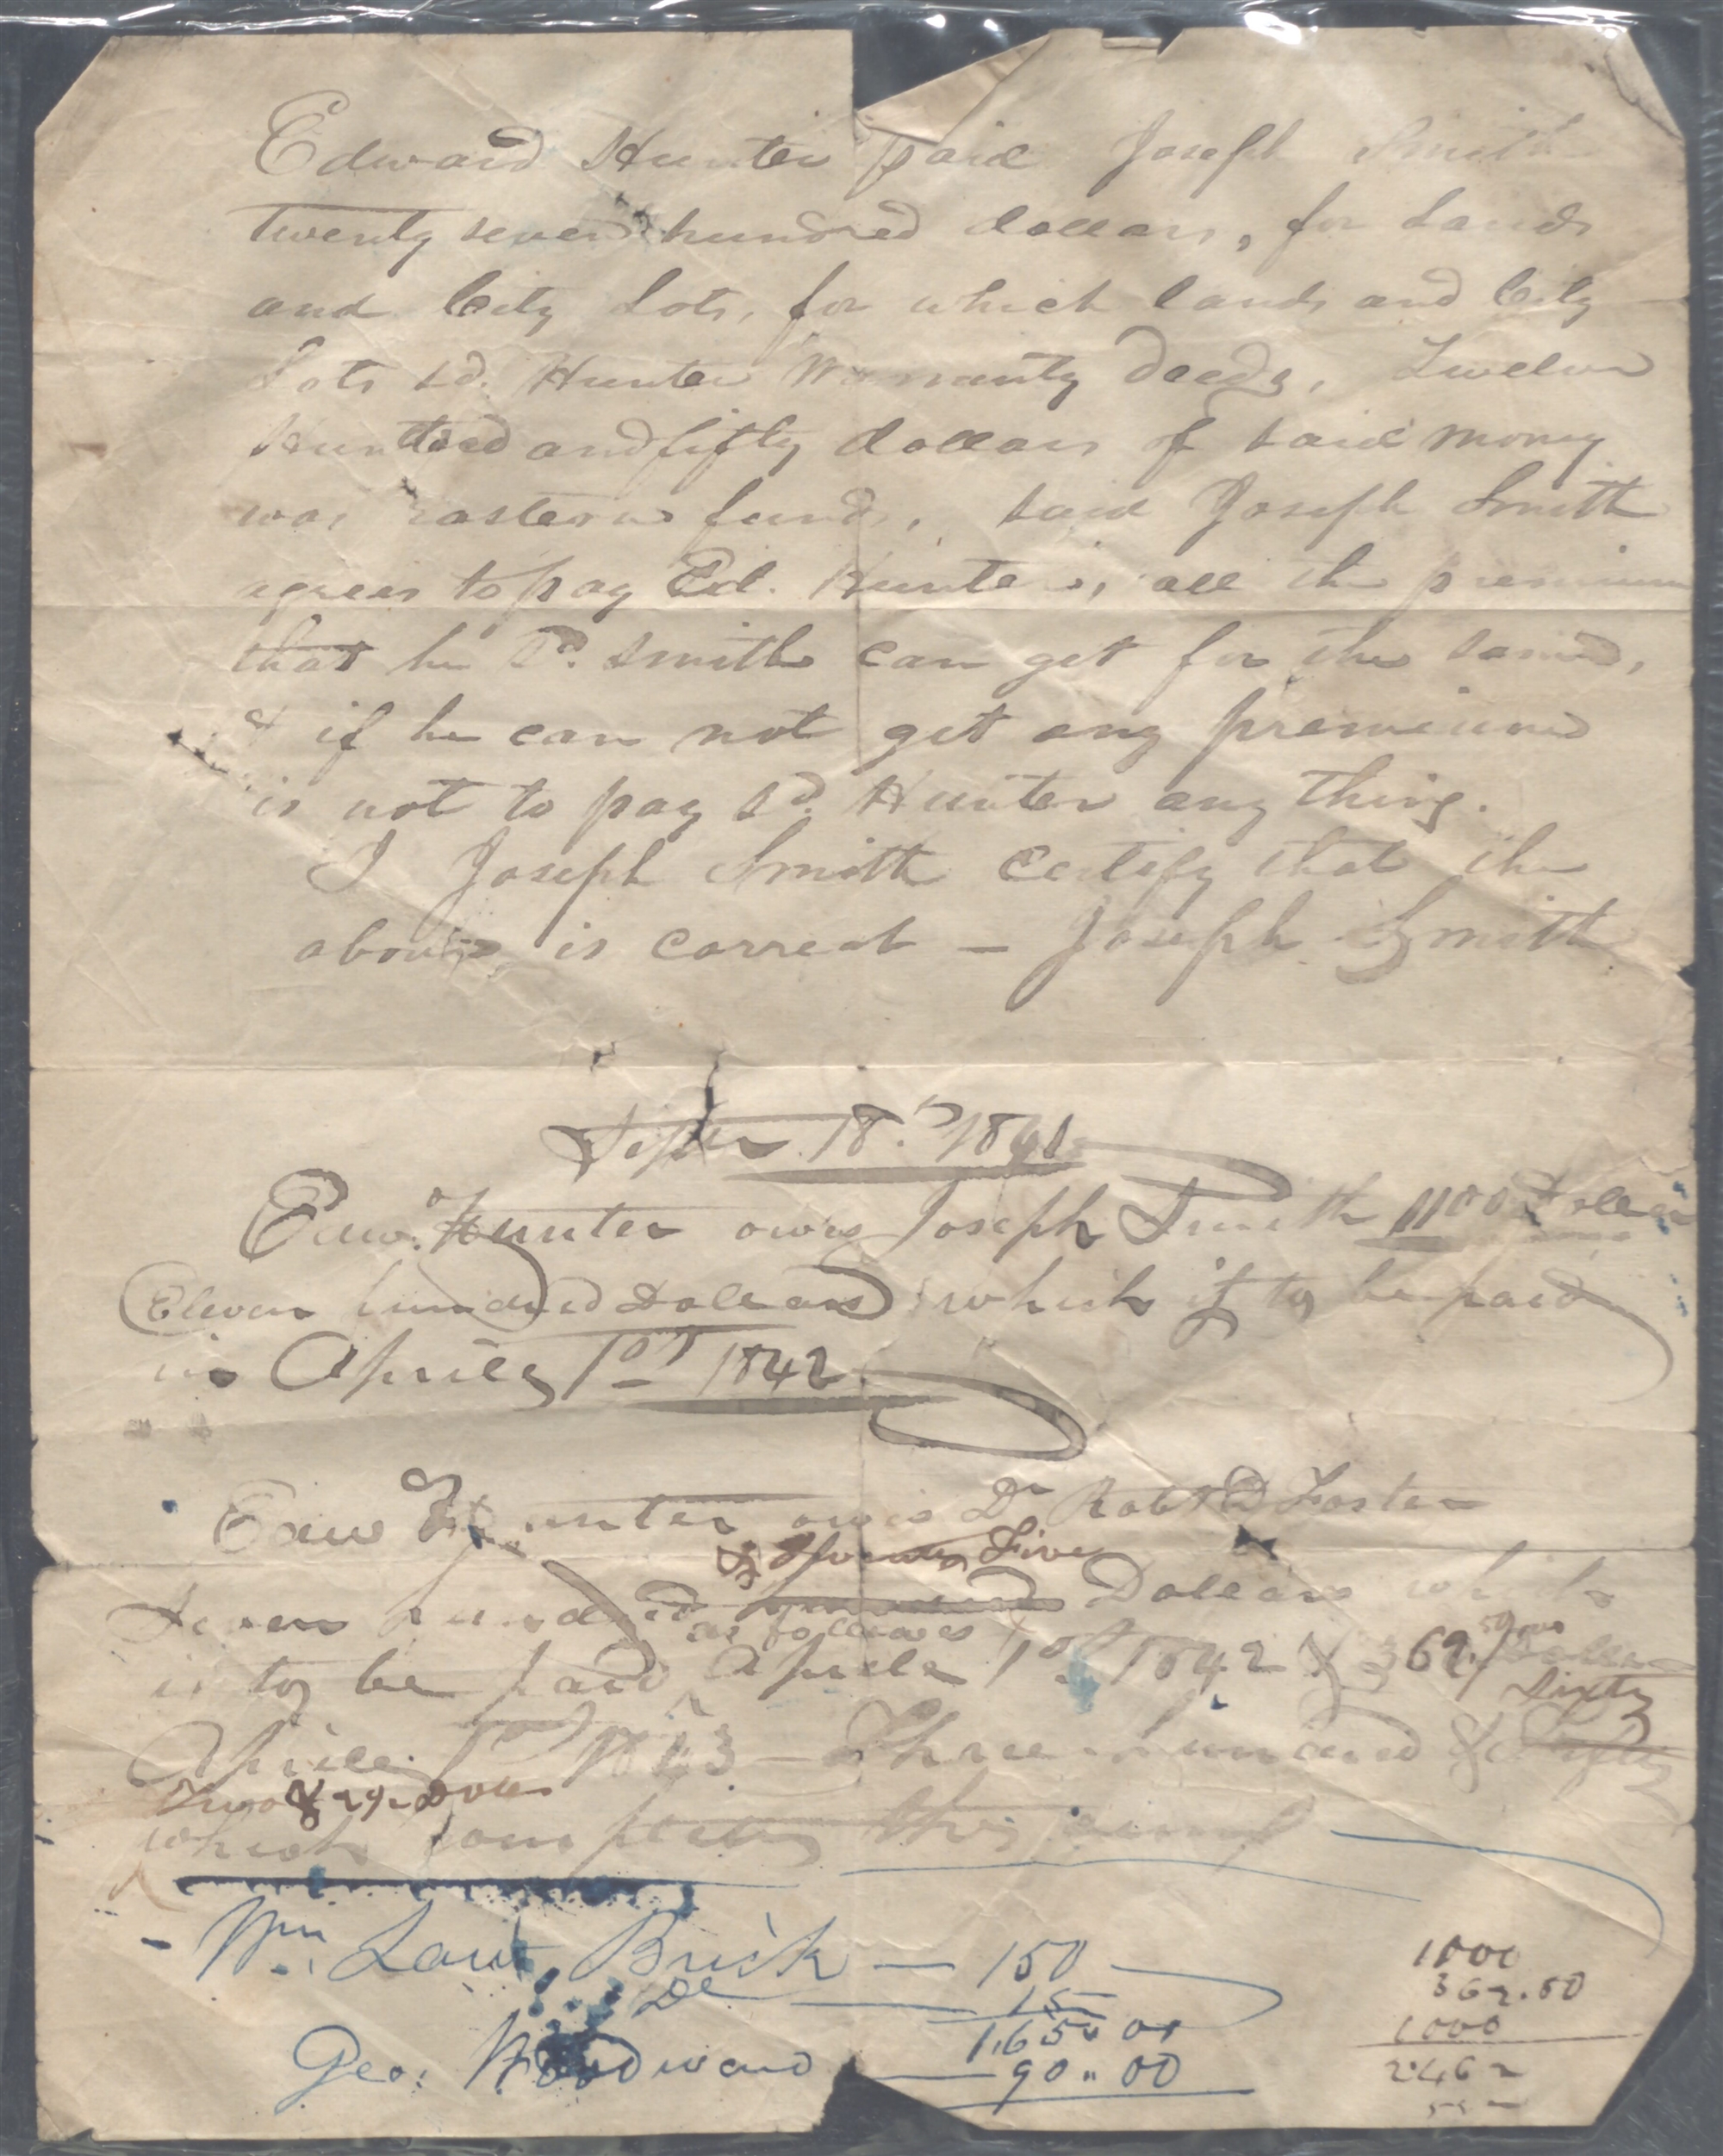 Edward Hunter paid Joseph Smith
twenty seven hundred dollars, for Lands
and City Lots, for which lands and City
Lots sd. Hunter Warranty deeds, Twelve
Hundred and fifty dollars of said money
was eastern funds, said Joseph Smith
agrees to pay Ed. Hunter, all the premium
that he Sd. Smith can get for the same,
& if he can not get any premium
is not to pay sd. Hunter any thing.
I Joseph Smith Certify that the
above is correct — Joseph Smith
Septer 18th 1841
Edwd Hunter owes Joseph Smith 1100 Dollars
Eleven hundred Dollars which is to be paid
in Aprile 1st 1842
Edwd Hunter owes Dr Robt D Foster
& Twenty Five
Seven hundred Dollars which
as follows
is to be paid Aprile 1st 1842 $ 362.50 Dollars
Sixty
Aprile 1st 1843 — Three hundred &
Two &
which this
- Wm. Law, Brick — 150
De 15
1,650 00
Geo: Woodward — 90 " 00
1000
362.50
1000
2462